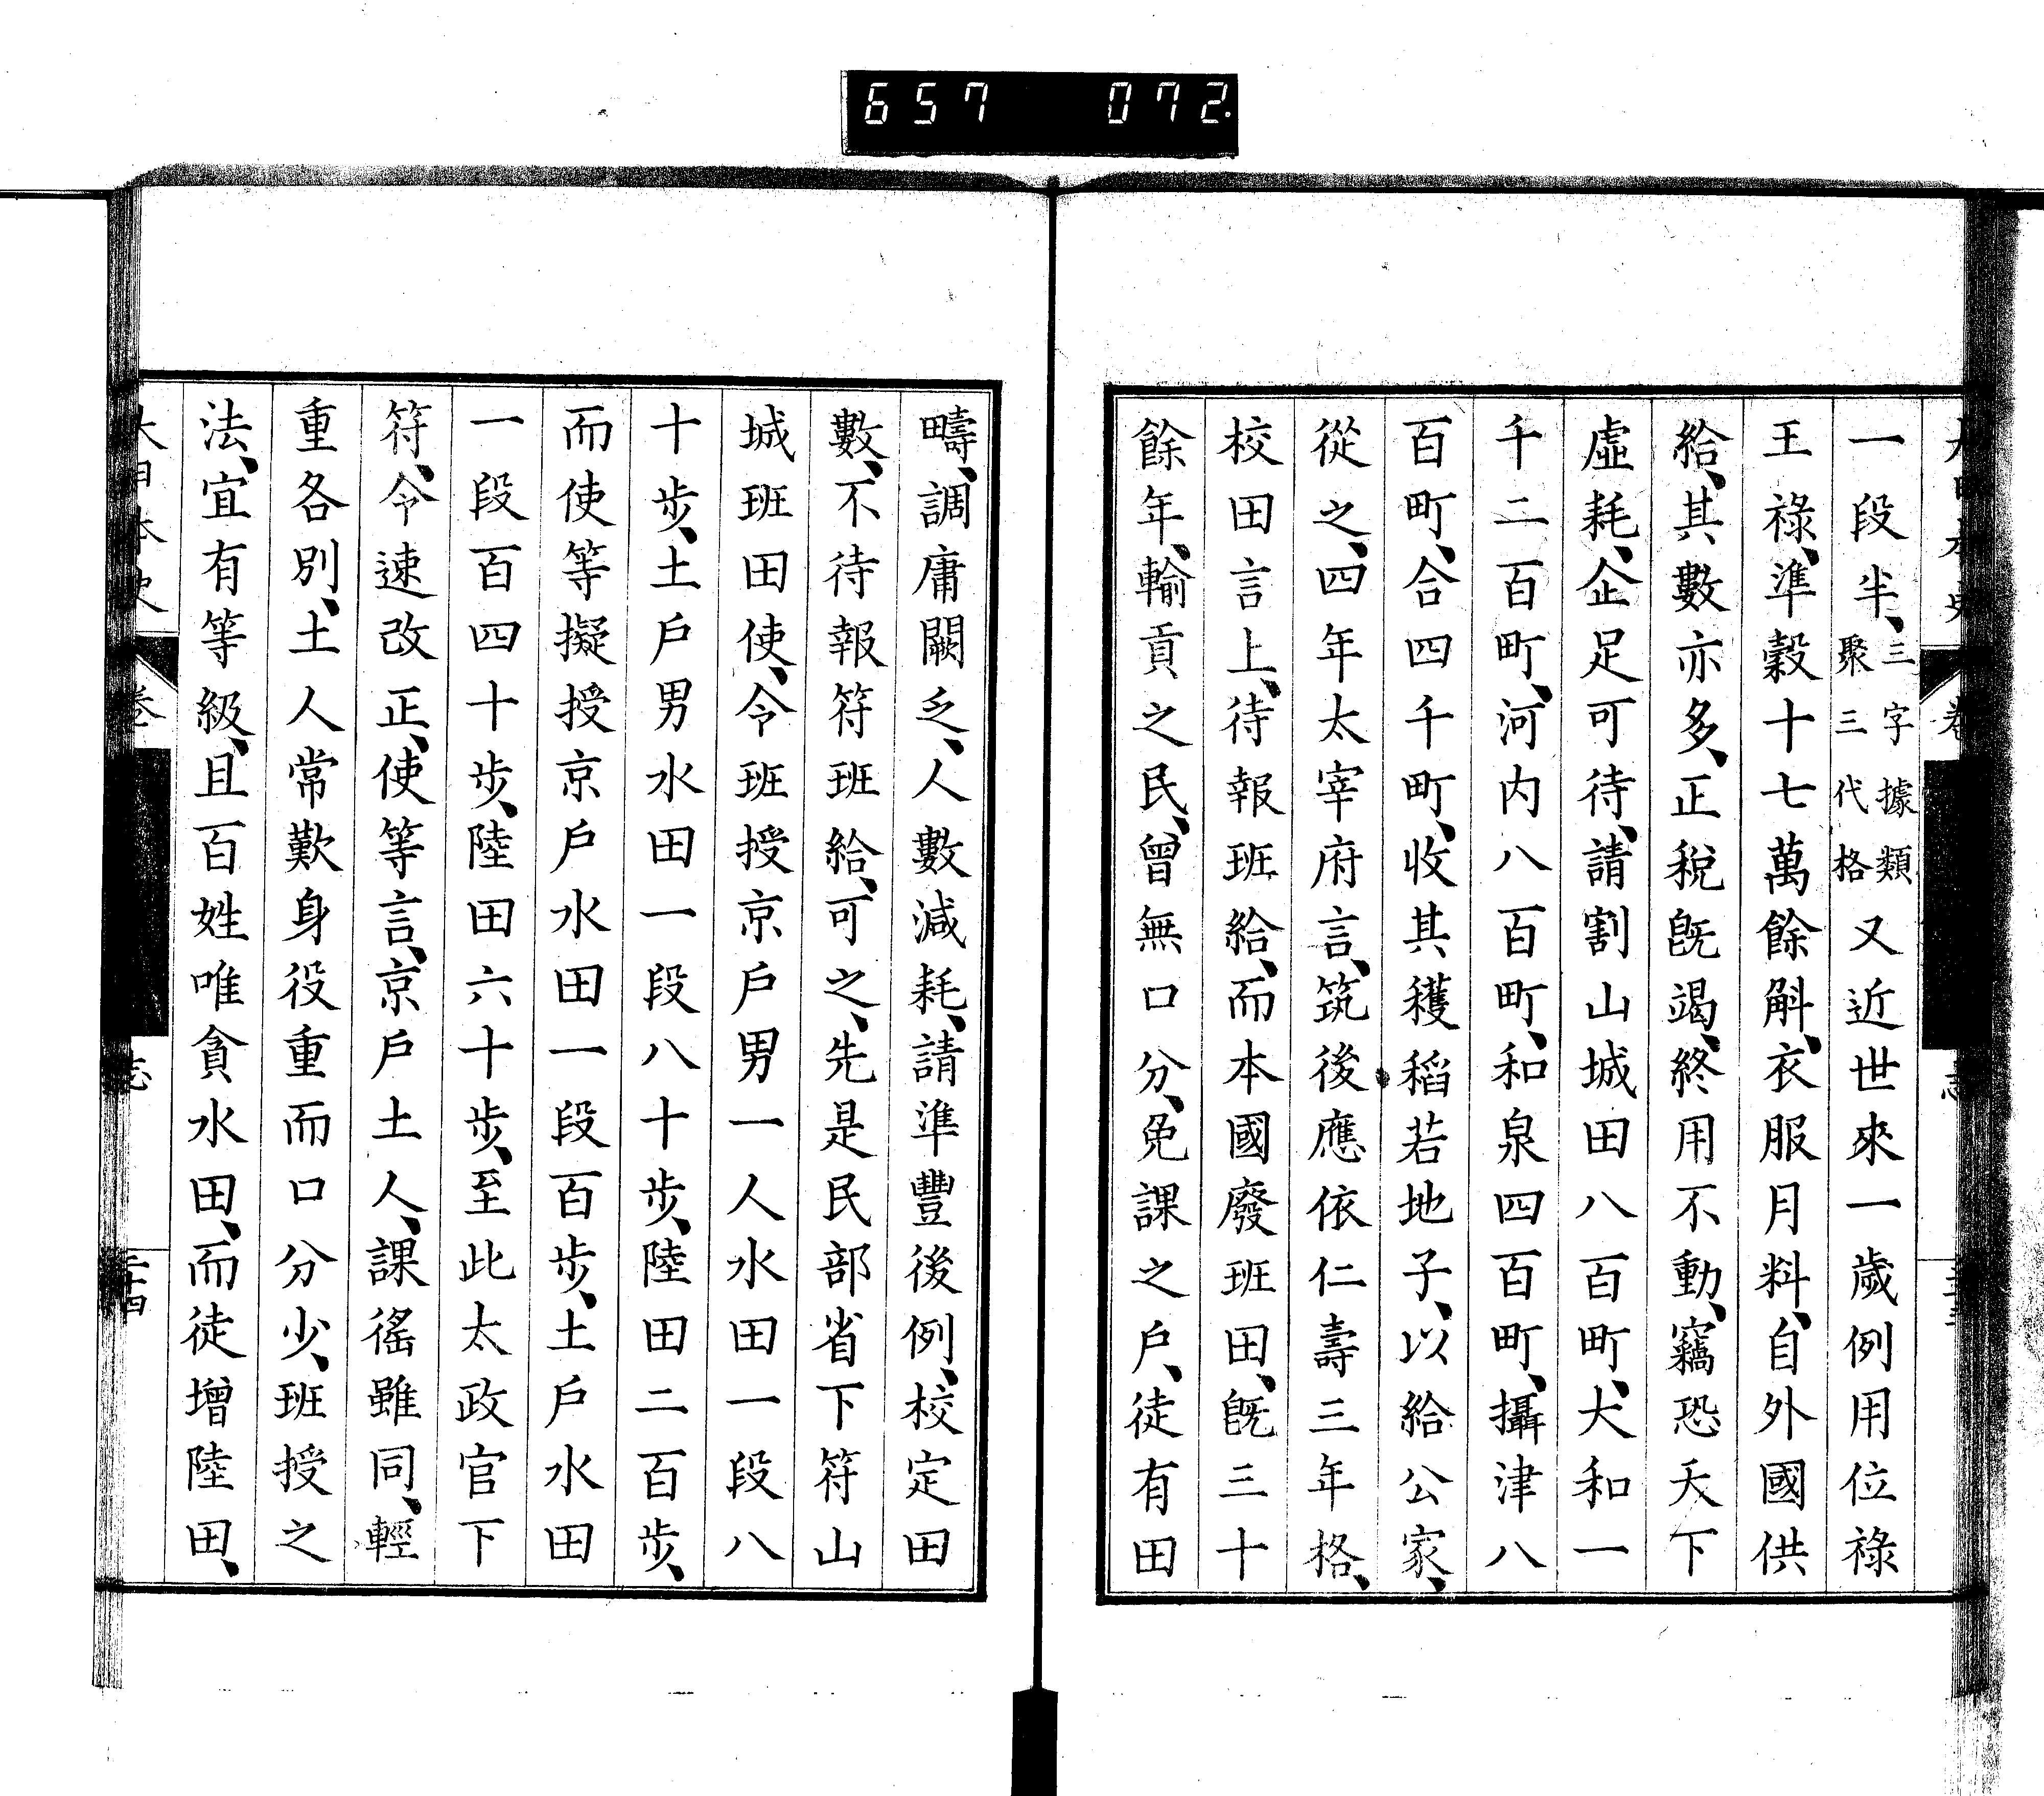 657 072
一段半、三字據類聚三代格又近世來一歲例用位祿
王祿、準穀十七萬餘斛、衣服月料、自外國供
給、其數亦多、正稅既竭、終用不動、竊恐天下
虛耗、企足可待、請割山城田八百町、大和一
千二百町、河內八百町、和泉四百町、攝津八
百町、合四千町、收其穫稻若地子、以給公家、
從之、四年太宰府言、筑後應依仁壽三年格、
校田言上、待報班給、而本國廢班田、既三十
餘年、輸貢之民、曾無口分、免課之戶、徒有田
疇、調庸闕乏、人數減耗、請準豐後例、校定田
數、不待報符班給、可之、先是民部省下符山
城班田使、令班授京戶男一人水田一段八
十步、土戶男水田一段八十步、陸田二百步、
而使等擬授京戶水田一段百步、土戶水田
一段百四十步、陸田六十步、至此太政官下
符、令速改正、使等言、京戶土人、課徭雖同、輕
重各別、土人常歎身役重而口分少、班授之
法、宜有等級、且百姓唯貪水田、而徒增陸田、
大日本史 卷 志